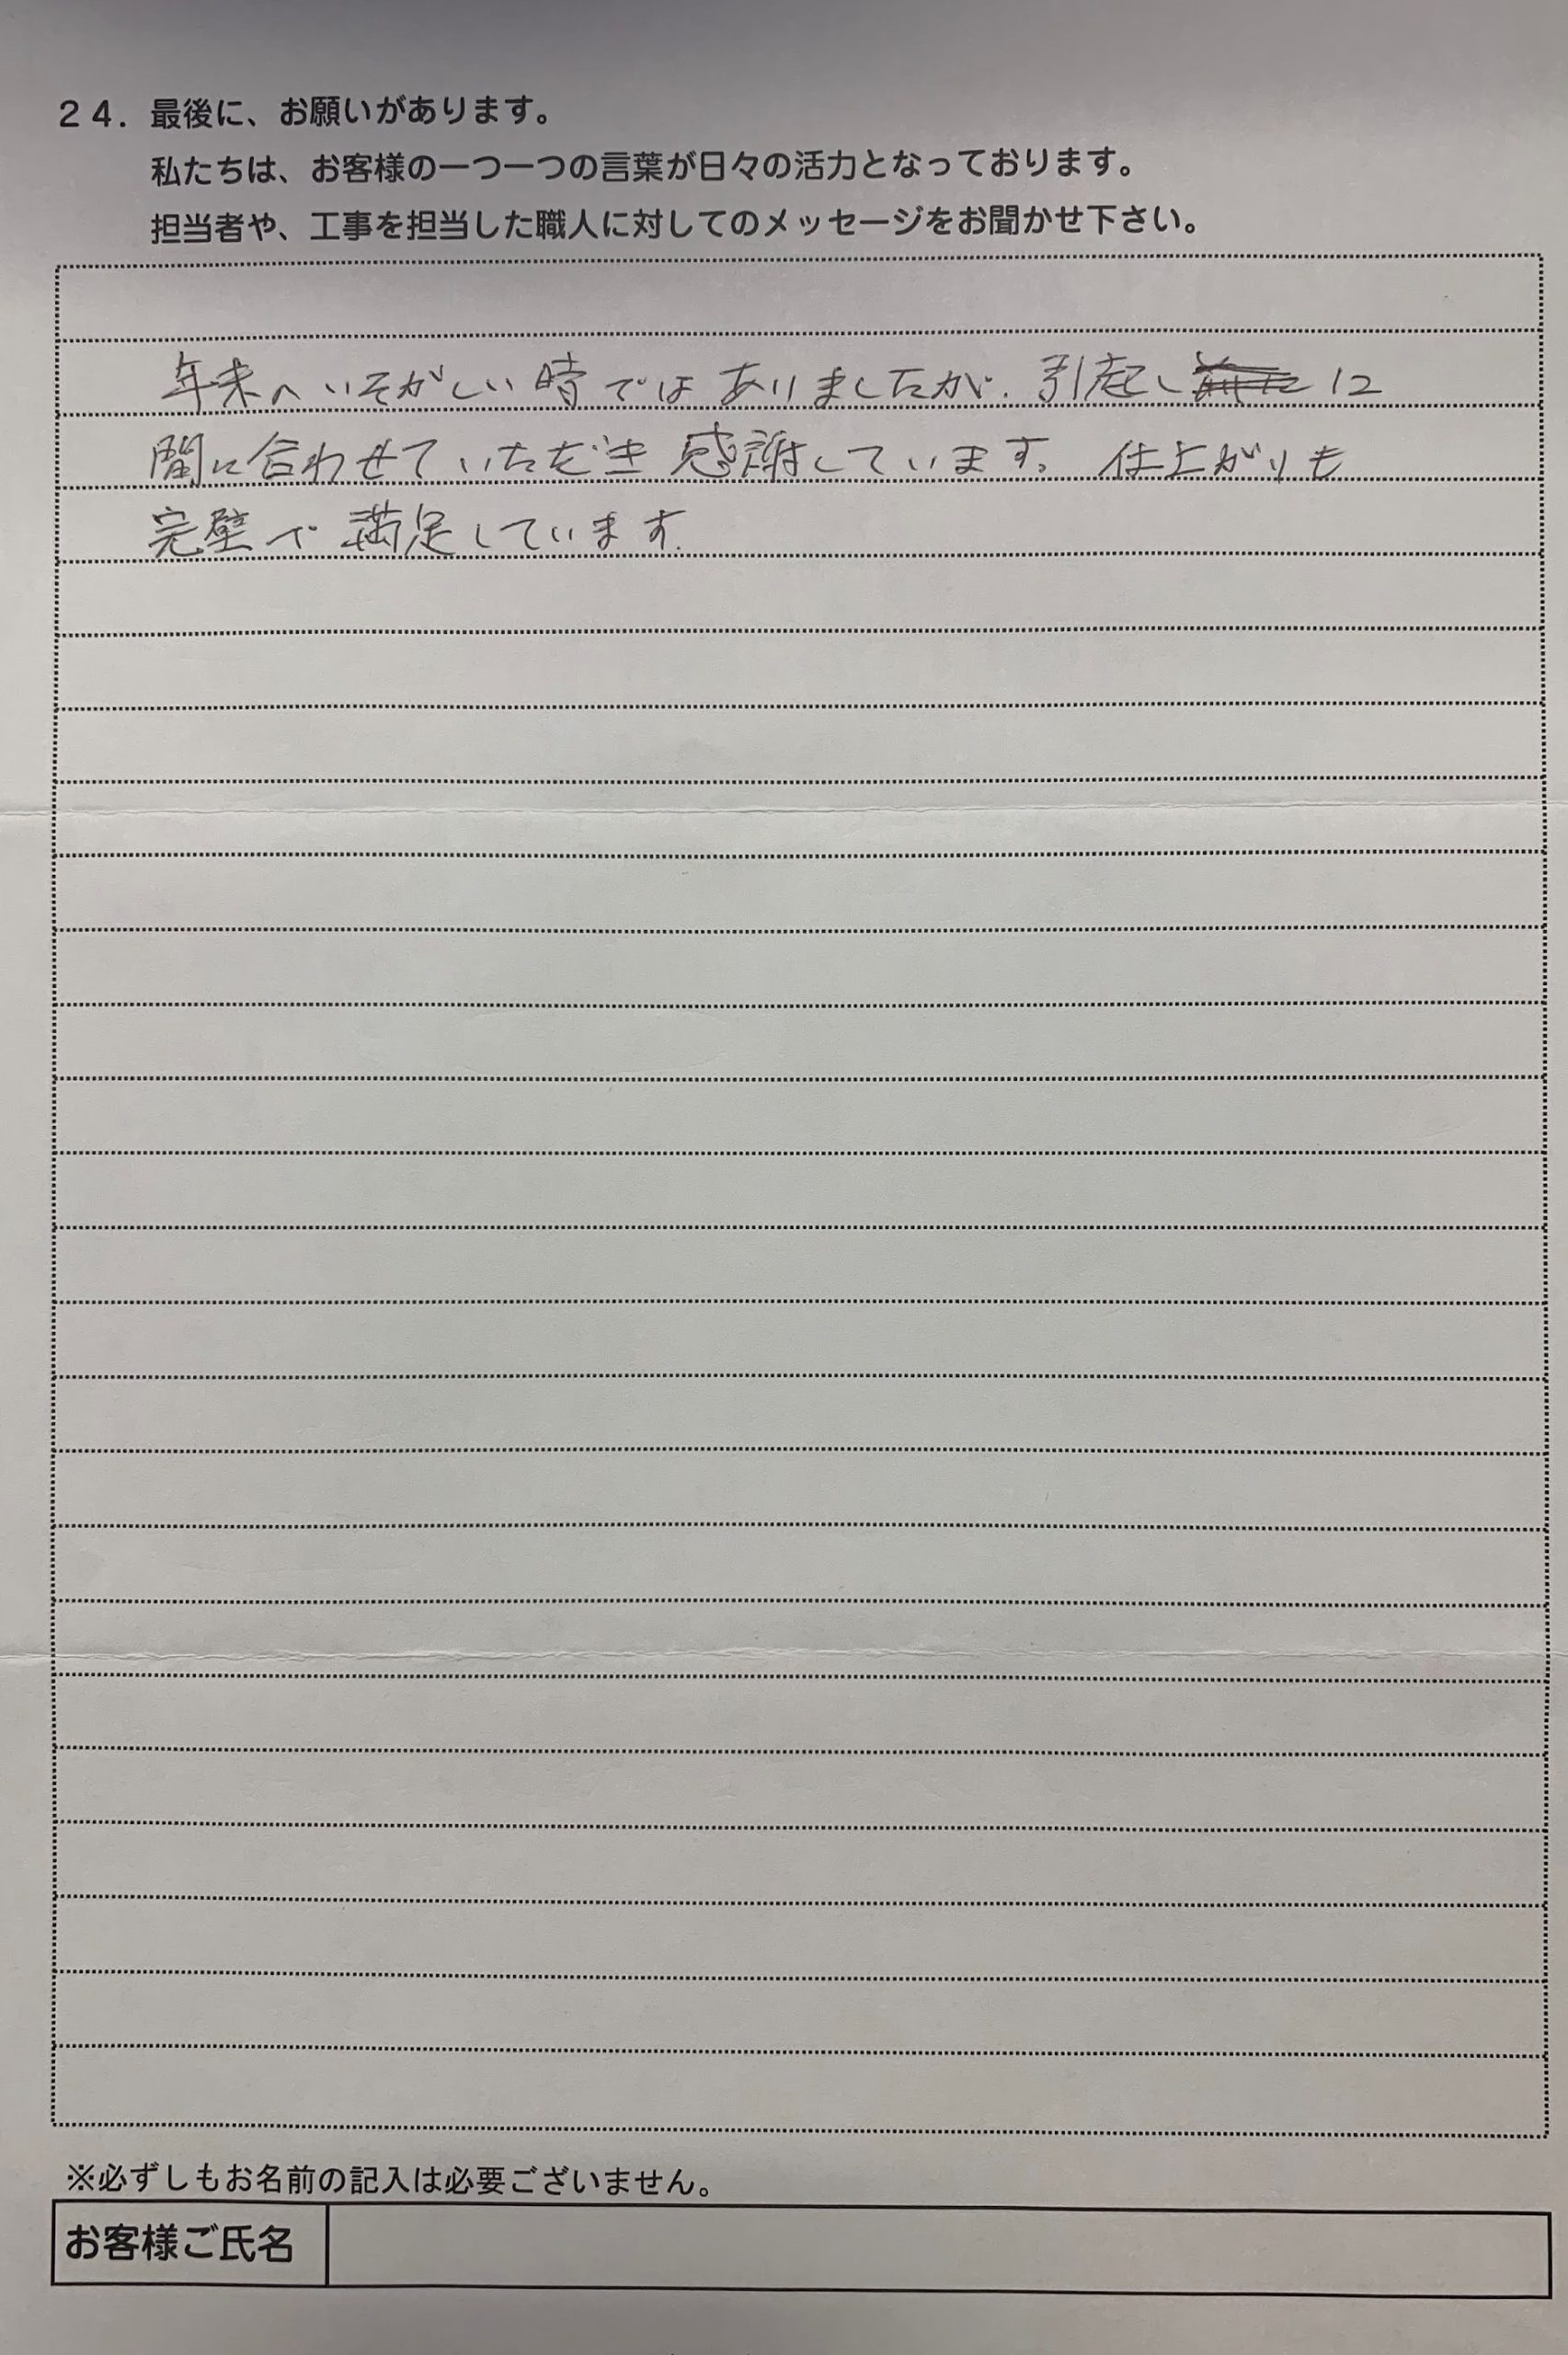 24. 最後に、お願いがあります。
私たちは、お客様の一つ一つの言葉が日々の活力となっております。
担当者や、工事を担当した職人に対してのメッセージをお聞かせ下さい。
年末のいそがしい時ではありましたが、引越しに
間に合わせていただき感謝しています。仕上がりも
完璧で満足しています。
※必ずしもお名前の記入は必要ございません。
お客様ご氏名